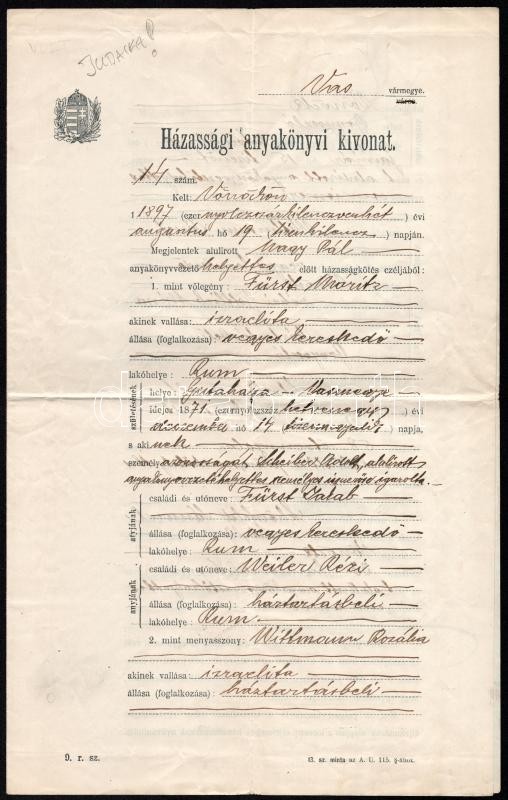 JUDAIKA!
Vas vármegye.
város.
Házassági anyakönyvi kivonat.
14 szám.
Kelt:
1897 (ezernyolczszázkilenczvenhét) évi
augusztus hó 19. (tizenkilencz) napján.
Megjelentek alulirott Nagy Pál
anyakönyvvezető helyettes előtt házasságkötés czéljából:
1. mint vőlegény: Fürst Móritz
akinek vallása: izraelita
állása (foglalkozása): vegyes kereskedő
lakóhelye: Rum
születésének
helye: Gutaháza Vasmegye
ideje: 1871 (ezernyolczszáz hetvenegy) évi
hó 14 (tizennegyedik) napja,
s akinek
személyazonosságát, Scheiber Adolf, alulirott
anyakönyvvezető helyettes személyes ismerőse igazolta
atyjának
családi és utóneve: Fürst Jakab
állása (foglalkozása): vegyes kereskedő
lakóhelye: Rum
anyjának
családi és utóneve: Weiler Rézi
állása (foglalkozása): háztartásbeli
lakóhelye: Rum
2. mint menyasszony: Wittmann Rozália
akinek vallása: izraelita
állása (foglalkozása): háztartásbeli
9. r. sz.
43. sz. minta az A. U. 115. §-ához.